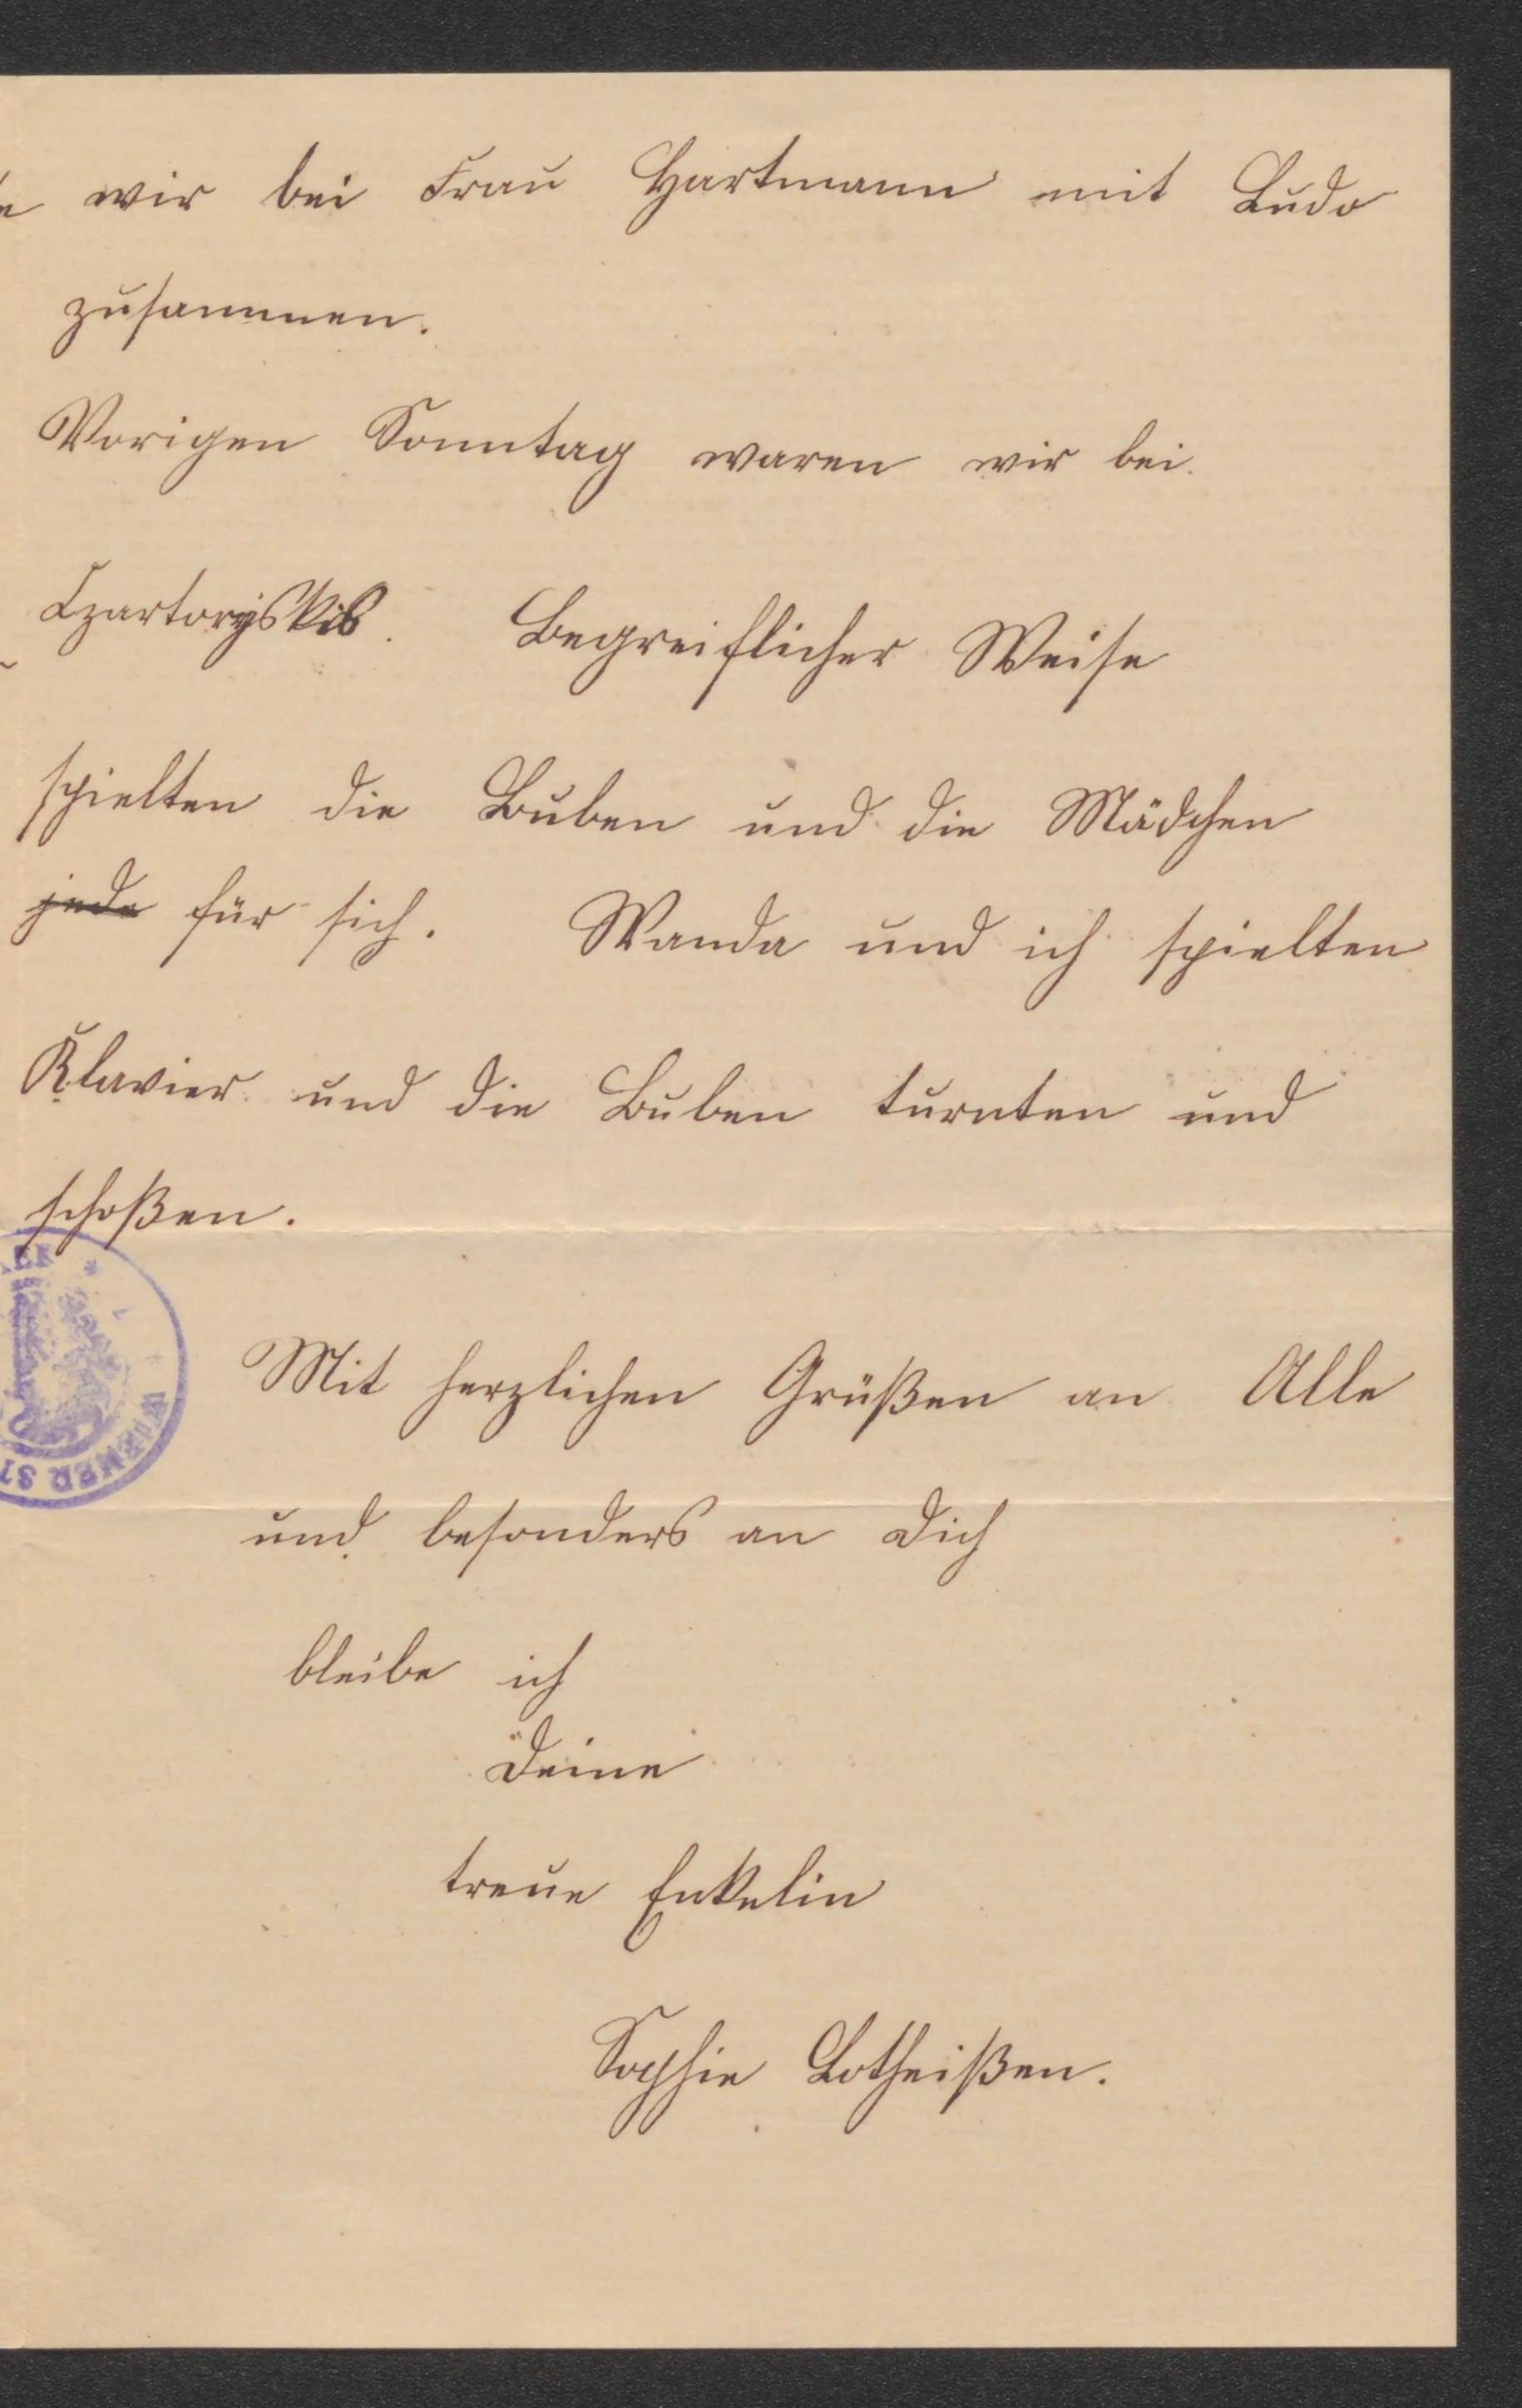 wir bei Frau Hartmann mit Ludo
zusammen.
Vorigen Sonntag waren wir bei
Czartoryskis. Begreiflicher Weise
spielten die Buben und die Mädchen
jede für sich. Wanda und ich spielten
Klavier und die Buben turnten und
schoßen.
Mit herzlichen Grüßen an Alle
und besonders an Dich
bleibe ich
Deine
treue Enkelin
Sophie Lotheißen.
WIENER ST